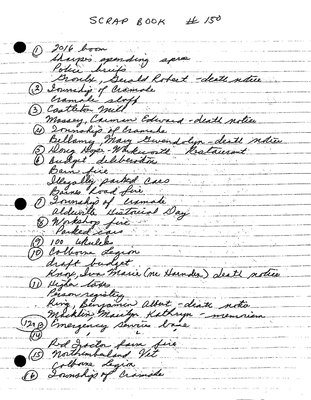 SCRAP BOOK # 150
① 2016 boom
Sharpes spending spree
Police briefs
Gerald Robert - death notice
② Township of Cramahe
Cramahe staff
③ Castleton Mill
Massey, Carman Edward - death notice
④ Township of Cramahe
Bellamy, Mary Gwendolyn - death notice
⑤ Doug Dyer - Warkworth Restaurant
⑥ Budget deliberation
Barn fire
Illegally parked cars
Barnes Road fire
⑦ Township of Cramahe
Alderville Historical Day
⑧ Workshop fire
Parked cars
⑨ 100 wheeler
⑩ Colborne Legion
draft budget
Knox, Iva Marie (ne Harnden) death notice
⑪ Higher taxes
Prison registry
Ring, Benjamin Albert - death notice
Macklin, Marilyn Kathryn - memoriam
Emergency Services base
⑭
Rod Tractor Barn fire
⑮ Northumberland Vet
Colborne Legion
⑯ Township of Cramahe